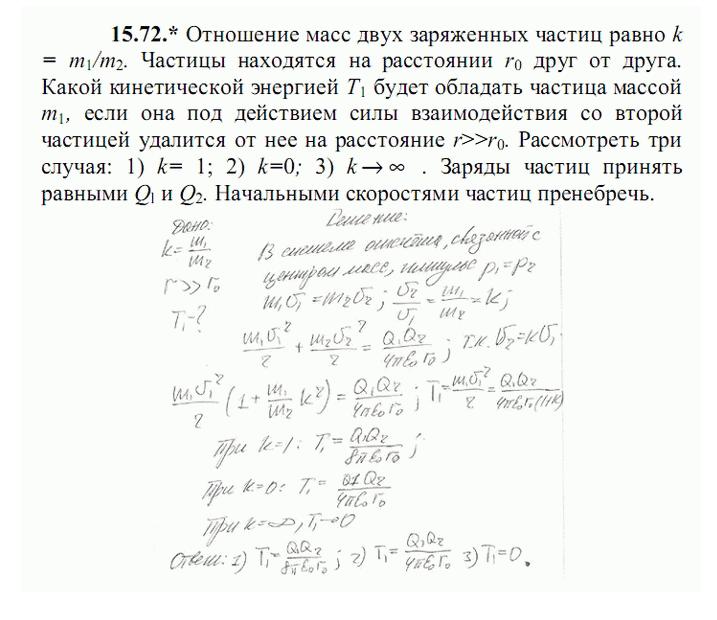 15.72.* Отношение масс двух заряженных частиц равно k
= m₁/m₂. Частицы находятся на расстоянии r₀ друг от друга.
Какой кинетической энергией T₁ будет обладать частица массой
m₁, если она под действием силы взаимодействия со второй
частицей удалится от нее на расстояние r>>r₀. Рассмотреть три
случая: 1) k= 1; 2) k=0; 3) k→∞ . Заряды частиц принять
равными Q₁ и Q₂. Начальными скоростями частиц пренебречь.
Дано:
k = m₁/m₂
r >> r₀
T₁-?
Решение:
В системе отсчёта, связанной с
центром масс, импульс p₁ = p₂
m₁υ₁ = m₂υ₂ ; υ₂/υ₁ = m₁/m₂ = k;
m₁υ₁²/2 + m₂υ₂²/2 = Q₁Q₂/4πε₀r₀ ; т.к. υ₂ = kυ₁.
m₁υ₁²/2 (1 + m₂/m₁ k²) = Q₁Q₂/4πε₀r₀ ; T₁ = m₁υ₁²/2 = Q₁Q₂/4πε₀r₀(1+k)
При k=1: T₁ = Q₁Q₂/8πε₀r₀ ;
При k=0: T₁ = Q₁Q₂/4πε₀r₀
При k=∞, T₁→0
Ответ: 1) T₁ = Q₁Q₂/8πε₀r₀ ; 2) T₁ = Q₁Q₂/4πε₀r₀ 3) T₁=0.